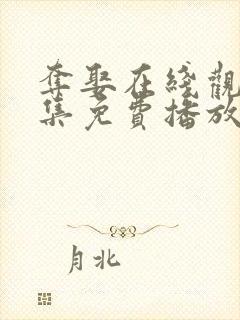 奪娶在綫觀
集免費播放
月北